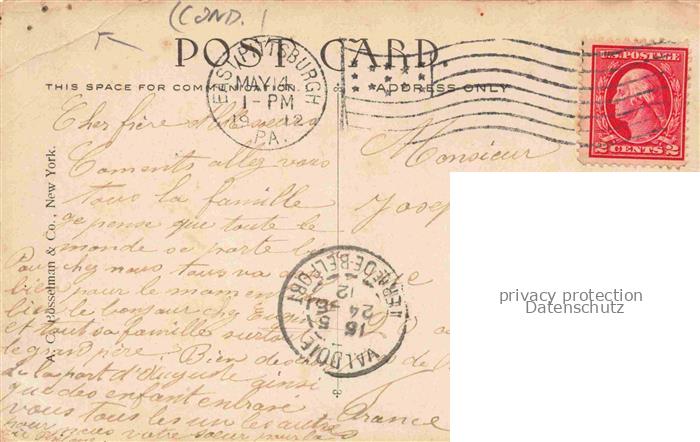 (COND.)
POST CARD.
THIS SPACE FOR COMMUNICATION.
ADDRESS ONLY
EAST PITTSBURGH
MAY 14
1-PM
1912
PA.
U.S. POSTAGE
2 CENTS 2
A. C. Bosselman & Co., New York.
Cher frère
Coments allez vous
tous la famille
je pense que toute le
monde se porte
Pour chez nous tous va
bien pour le moment
bien le bonjour chez
et tout sa famille surtout
le grand père. Bien des
de la part d'Auguste ainsi
que des enfant
vous tous les un les autres
pour nous votre sœur pour la
Monsieur
France
VALDOIE
16
24
12
TERRRE DE BELFORT
privacy protection
Datenschutz